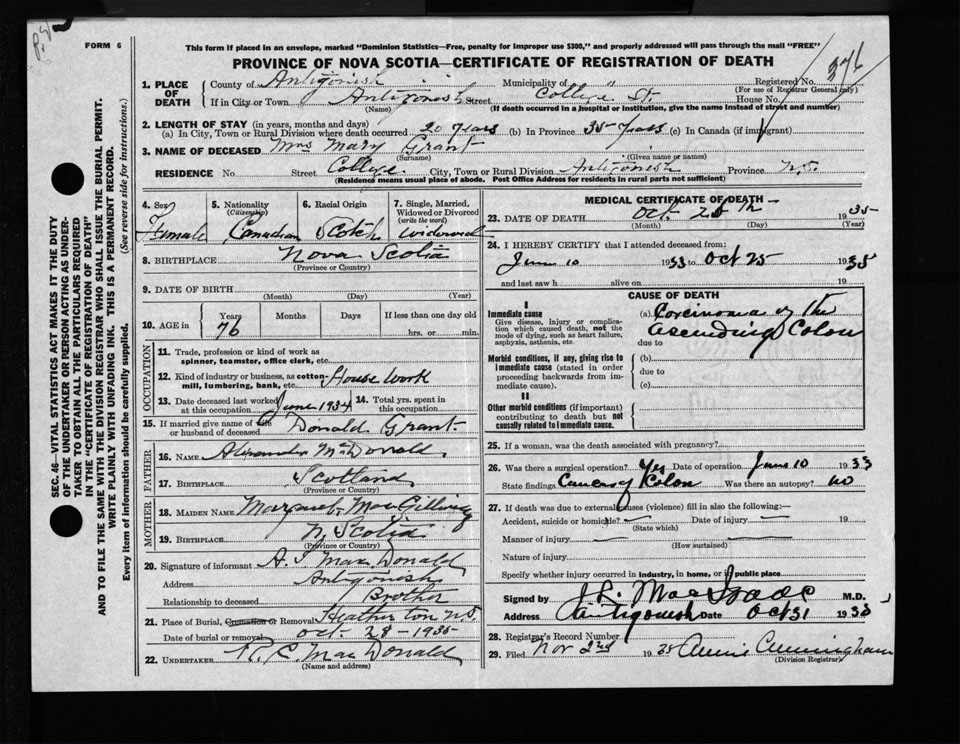 FORM 6
This form if placed in an envelope, marked "Dominion Statistics—Free, penalty for improper use $300," and properly addressed will pass through the mail "FREE"
PROVINCE OF NOVA SCOTIA—CERTIFICATE OF REGISTRATION OF DEATH
376
1. PLACE OF DEATH
County of Antigonish
Municipality of "
Registered No.
(For use of Registrar General only)
If in City or Town Antigonish Street College St House No.
(Name) (If death occurred in a hospital or institution, give the name instead of street and number)
2. LENGTH OF STAY (in years, months and days)
(a) In City, Town or Rural Division where death occurred 20 years (b) In Province 35 years (c) In Canada (if immigrant)
3. NAME OF DECEASED Mrs Mary Grant
(Surname) (Given name or names)
RESIDENCE No. Street College. City, Town or Rural Division Antigonish Province N.S.
(Residence means usual place of abode. Post Office Address for residents in rural parts not sufficient)
4. Sex Female
5. Nationality (Citizenship) Canadian
6. Racial Origin Scotch
7. Single, Married, Widowed or Divorced (write the word) widowed
8. BIRTHPLACE Nova Scotia
(Province or Country)
9. DATE OF BIRTH
(Month) (Day) (Year)
10. AGE in Years 76 Months Days If less than one day old hrs. or min.
OCCUPATION
11. Trade, profession or kind of work as spinner, teamster, office clerk, etc.
12. Kind of industry or business, as cotton-mill, lumbering, bank, etc. House work
13. Date deceased last worked at this occupation June 1934
14. Total yrs. spent in this occupation
15. If married give name of wife or husband of deceased Donald Grant
FATHER
16. NAME Alexander MacDonald.
17. BIRTHPLACE Scotland
(Province or Country)
MOTHER
18. MAIDEN NAME Margaret MacGillivray
19. BIRTHPLACE N. Scotia
(Province or Country)
20. Signature of informant A. J MacDonald
Address Antigonish
Relationship to deceased Brother
21. Place of Burial, Cremation or Removal Heatherton NS
Date of burial or removal Oct. 28 - 1935
22. UNDERTAKER R. C. MacDonald
(Name and address)
MEDICAL CERTIFICATE OF DEATH
23. DATE OF DEATH Oct 25th 1935
(Month) (Day) (Year)
24. I HEREBY CERTIFY that I attended deceased from:
June 10 1933 to Oct 25 1935
and last saw h alive on 19
CAUSE OF DEATH
I
Immediate cause
Give disease, injury or complication which caused death, not the mode of dying, such as heart failure, asphyxia, asthenia, etc.
(a) Carcinoma of the
Ascending Colon
due to
Morbid conditions, if any, giving rise to immediate cause (stated in order proceeding backwards from immediate cause).
(b)
due to
(c)
II
Other morbid conditions (if important) contributing to death but not causally related to immediate cause.
25. If a woman, was the death associated with pregnancy?
26. Was there a surgical operation? Yes Date of operation June 10 1933
State findings Cancer of Colon Was there an autopsy? no
27. If death was due to external causes (violence) fill in also the following:—
Accident, suicide or homicide? — Date of injury — 19
(State which)
Manner of injury — —
(How sustained)
Nature of injury
Specify whether injury occurred in industry, in home, or in public place
Signed by J.R. MacIsaac M.D.
Address Antigonish Date Oct 31 1935
28. Registrar's Record Number
29. Filed Nov 2nd 1935 Annie Cunningham
(Division Registrar)
SEC. 46—VITAL STATISTICS ACT MAKES IT THE DUTY
OF THE UNDERTAKER OR PERSON ACTING AS UNDER-
TAKER TO OBTAIN ALL THE PARTICULARS REQUIRED
IN THE "CERTIFICATE OF REGISTRATION OF DEATH"
AND TO FILE THE SAME WITH THE DIVISION REGISTRAR WHO SHALL ISSUE THE BURIAL PERMIT.
WRITE PLAINLY WITH UNFADING INK. THIS IS A PERMANENT RECORD.
Every item of information should be carefully supplied. (See reverse side for instructions.)